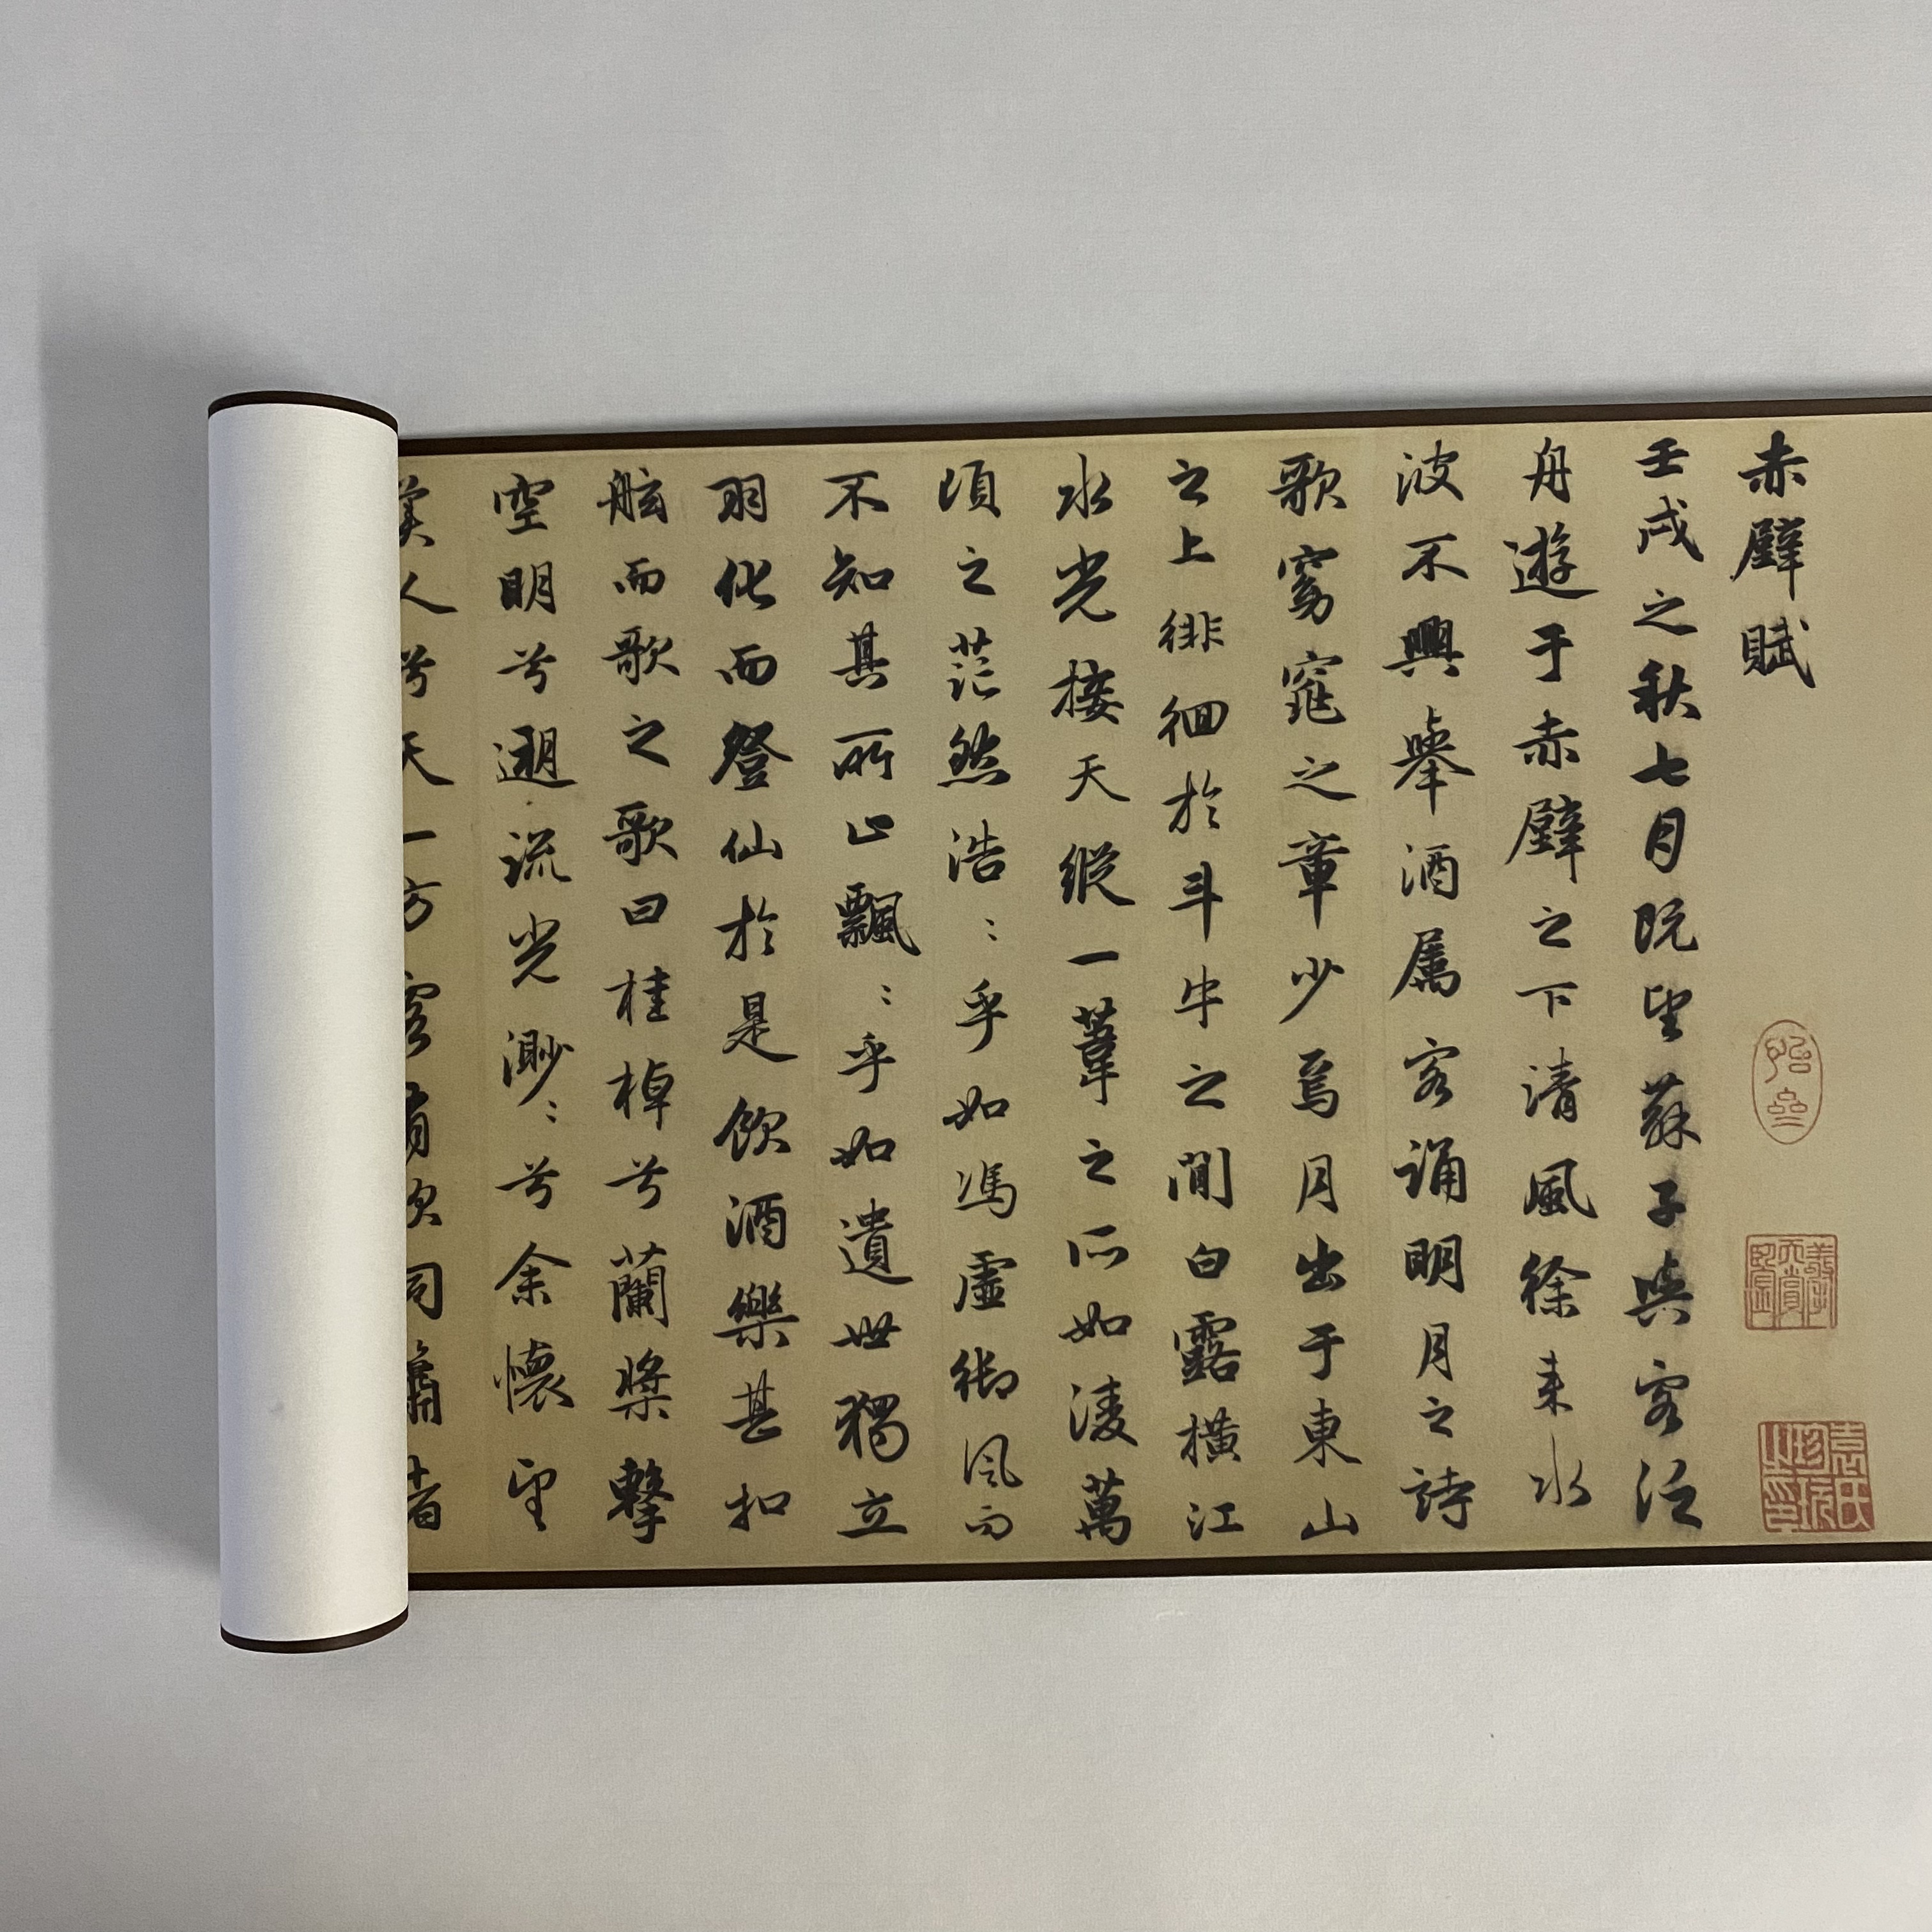 赤壁賦
壬戌之秋七月既望蘇子與客泛
舟遊于赤壁之下清風徐来水
波不興舉酒属客誦明月之詩
歌窈窕之章少焉月出于東山
之上徘徊於斗牛之間白露橫江
水光接天縱一葦之所如淩萬
頃之茫然浩〻乎如馮虛御風而
不知其所止飄〻乎如遺世獨立
羽化而登仙於是飲酒樂甚扣
舷而歌之歌曰桂棹兮蘭槳擊
空明兮遡流光渺〻兮余懷望
美人兮天一方客有吹洞簫者
袁氏珍玩止印